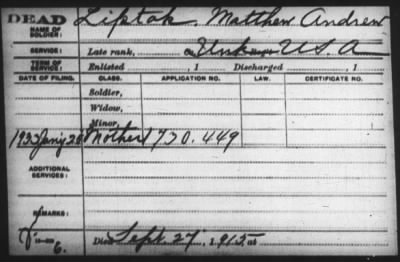 DEAD
NAME OF SOLDIER: Liptak, Matthew Andrew
SERVICE: Late rank, Unk U.S.A
TERM OF SERVICE: Enlisted , 1 Discharged , 1
DATE OF FILING. CLASS. APPLICATION NO. LAW. CERTIFICATE NO.
Soldier,
Widow,
Minor,
1933 Jan'y 20 Mother 1730.449
ADDITIONAL SERVICES:
REMARKS:
6. Died Sept. 27, 1915, at